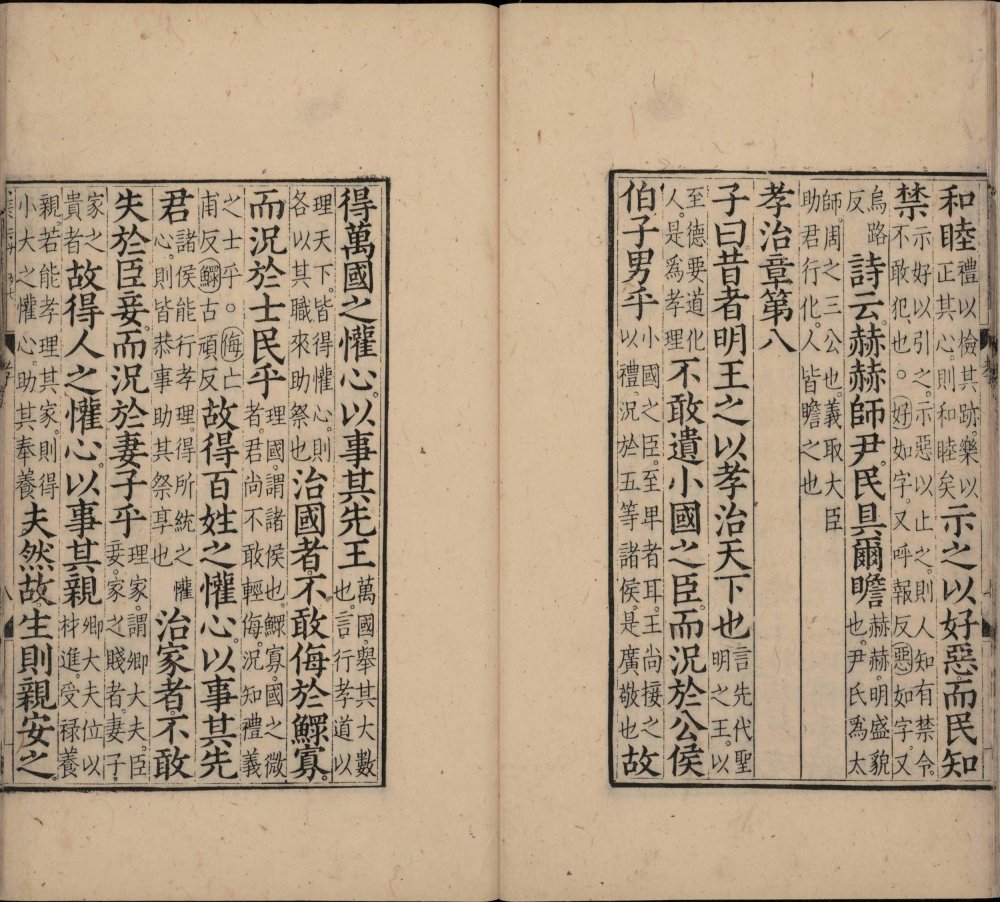 和睦禮以檢其跡。樂以正其心。則和睦矣。示之以好惡。而民知
禁示好以引之。示惡以止之。則人知有禁令。不敢犯也。○好如字。又呼報反。惡如字。又
烏路反。詩云。赫赫師尹。民具爾瞻。赫赫。明盛貌也。尹氏爲太
師。周之三公也。義取大臣助君行化。人皆瞻之也
孝治章第八
子曰。昔者明王之以孝治天下也言先代聖明之王。以
至德要道化人。是爲孝理不敢遺小國之臣。而況於公侯
伯子男乎小國之臣。至卑者耳。王尚接之以禮。況於五等諸侯。是廣敬也故
得萬國之懽心。以事其先王萬國。舉其大數也。言行孝道以
理天下。皆得懽心。則各以其職來助祭也治國者。不敢侮於鰥寡。
而況於士民乎理國。謂諸侯也。鰥寡。國之微者。君尚不敢輕侮。況知禮義
之士乎。○侮亡甫反鰥古頑反故得百姓之懽心。以事其先
君諸侯能行孝理。得所統之懽心。則皆恭事助其祭享也治家者。不敢
失於臣妾。而況於妻子乎理家。謂卿大夫。臣妾。家之賤者。妻子。
家之貴者故得人之懽心。以事其親卿大夫位以材進。受禄養
親。若能孝理其家。則得小大之懽心。助其奉養夫然。故生則親安之。